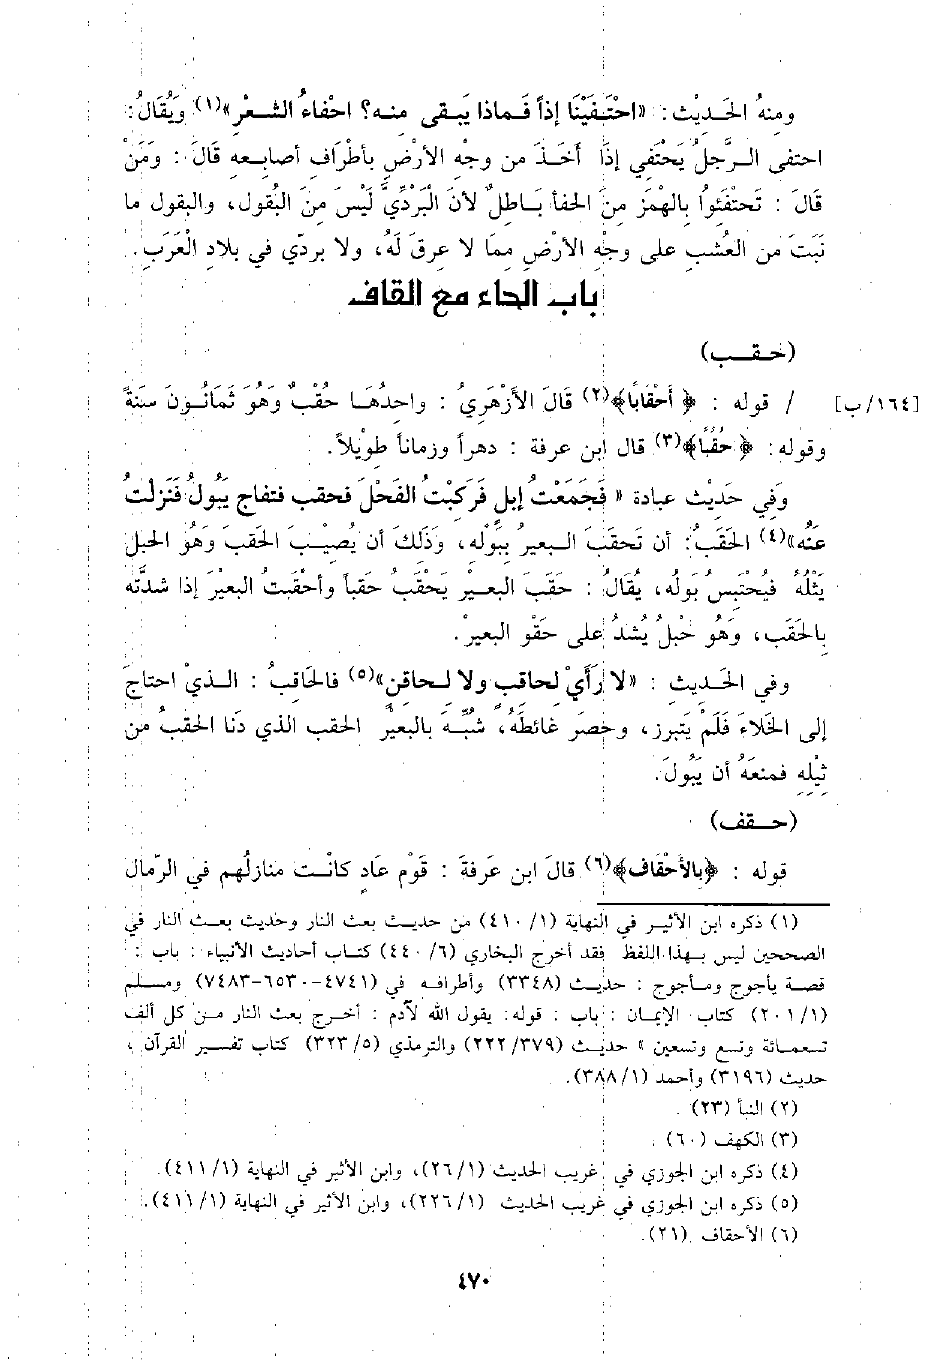 ومنهُ الحَديْث: «احْتَفَيْنَا إذاً فَماذا يَبقى منه؟ احْفاءُ الشعْر»(١) وَيُقَالُ:
احتفى الرَّجلُ يَحْتَفي إذَا أخَذَ من وجْه الأرْضِ بأطْرَافِ أصابعه قَالَ: وَمَنْ
قَالَ: تَحتَفْئواُ بالهْمَز منَ الحفأ بَاطلٌ لأنَ الْبَرْدَيَّ لَيْسَ منَ الْبُقول، والبقول ما
نَبَتَ من العُشب على وجْه الأرْضِ مما لا عرقَ لَهُ، ولا بردّي في بلادِ الْعَرَب.
باب الحاء مع القاف
(حـقـب)
[١٦٤/ب] / قوله: ﴿أحْقَابًا﴾(٢) قَالَ الأزْهَريُ: واحدُهَا حُقْبٌ وَهُوَ ثَمَانُونَ سَنَةً
وقوله: ﴿حُقُبًا﴾(٣) قال ابن عرفة: دهراً وزماناً طوْيلاً.
وَفي حَديْث عبادة «فَجَمَعْتُ إبل فَركَبْتُ الفَحْلَ فحقب فتفاج يَبُولُ فَنَزلتُ
عَنْه»(٤) الحَقَبُ: أن تَحقَبَ البعيرُ ببُوْله، وَذَلكَ أن يُصيْبَ الحَقب وَهُوَ الحبل
يَثْلَهُ فَيُحْتَبسُ بَولُه، يُقَالُ: حَقَبَ البعيْر يَحْقَبُ حَقباً وأحْقَبتُ البعْيرَ إذا شدَّته
بالحَقَب، وَهُو حَبْلُ يُشَدُ على حَقْو البعيرْ.
وفي الحَديث: «لا رَأَيْ لحاقب ولا لحاقن»(٥) فالحَاقبُ: الذيْ احتاجَ
إلى الخَلاءَ فَلَمْ يَتبرز، وحصَر غائطَهُ، شُبِّهَ بالبعيْر الحقب الذي دَنا الحَقبُ من
ثيْله فمنعَهُ أن يَبُولَ.
(حـقف)
قوله: ﴿بالأحْقَاف﴾(٦) قالَ ابن عَرفَةَ: قَوْم عَادٍ كانْت منازلُهم في الرّمال
(١) ذكره ابن الأثير في النهاية (١/ ٤١٠) من حديث بعث النار وحديث بعث النار في
الصحيحين ليس بهذا اللفظ فقد أخرج البخاري (٦/ ٤٤٠) كتاب أحاديث الأنبياء: باب:
قصة يأجوج ومأجوج: حديث (٣٣٤٨) وأطرافه في (٤٧٤١-٦٥٣٠-٧٤٨٣) ومسلم
(١/ ٢٠١) كتاب الإيمان: باب: قوله: يقول الله لآدم: أخرج بعث النار من كل ألف
تسعمائة وتسع وتسعين» حديث (٢٢٢/٣٧٩) والترمذي (٥/ ٣٢٣) كتاب تفسير القرآن،
حديث (٣١٩٦) وأحمد (١/ ٣٨٨).
(٢) النبأ (٢٣).
(٣) الكهف (٦٠).
(٤) ذكره ابن الجوزي في غريب الحديث (١/ ٢٦)، وابن الأثير في النهاية (١/ ٤١١).
(٥) ذكره ابن الجوزي في غريب الحديث (١/ ٢٢٦)، وابن الأثير في النهاية (١/ ٤١١).
(٦) الأحقاف (٢١).
٤٧٠